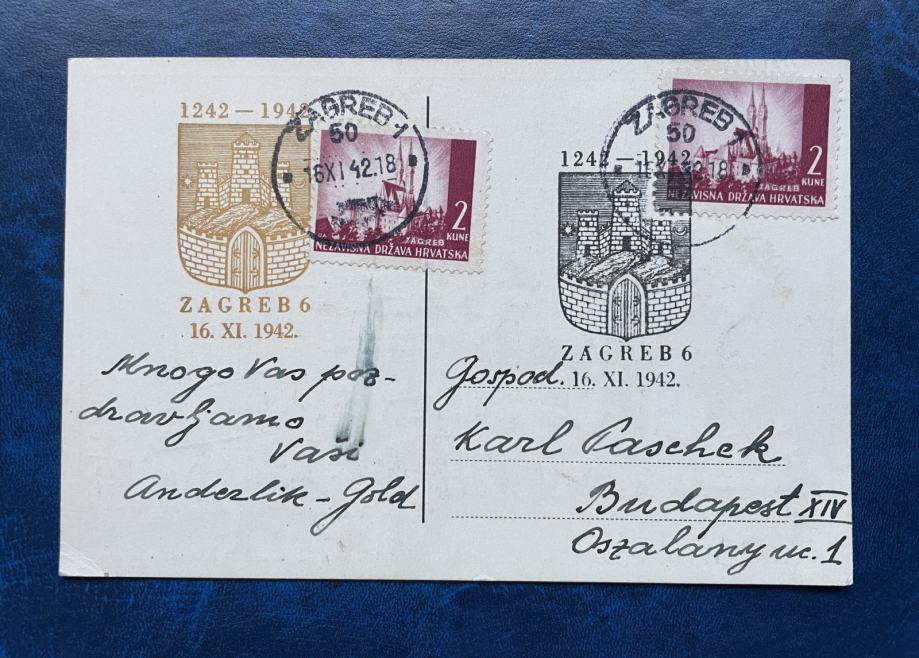 1242 – 1942
ZAGREB 1
50
16 XI 42.18
2
KUNE
ZAGREB
NEZAVISNA DRŽAVA HRVATSKA
ZAGREB 6
16. XI. 1942.
Mnogo Vas poz-
dravljamo
Vaši
Anderlik - Gold
ZAGREB 1
50
42.18
1242 – 1942
2
KUNE
ZAGREB
NEZAVISNA DRŽAVA HRVATSKA
ZAGREB 6
16. XI. 1942.
Gospod.
Karl Paschek
Budapest XIV
Oszalany uc. 1